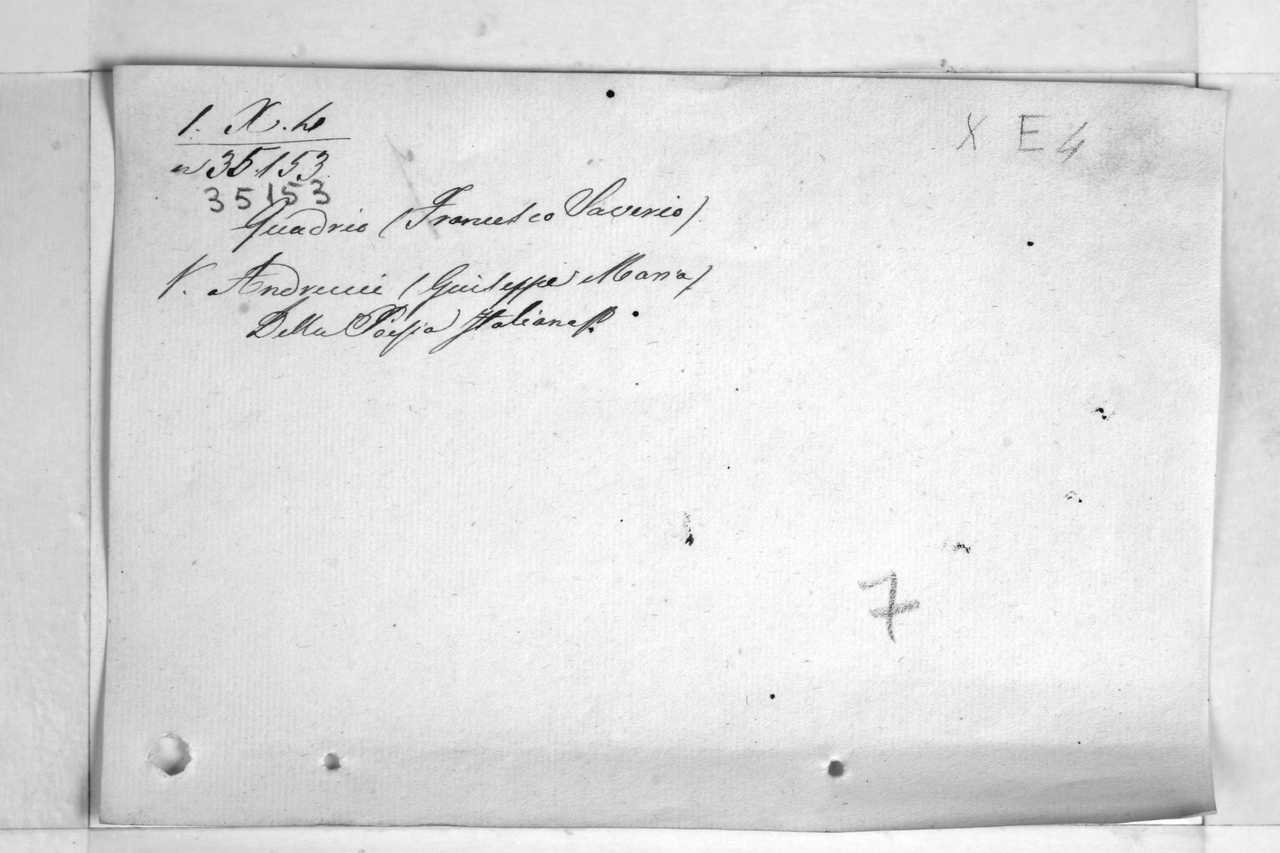 1. X. 4
X E 4
n 35.153
35153
Quadrio (Francesco Saverio)
V. Andrucci (Guiseppe Maria)
Della Poesia Italiana
7